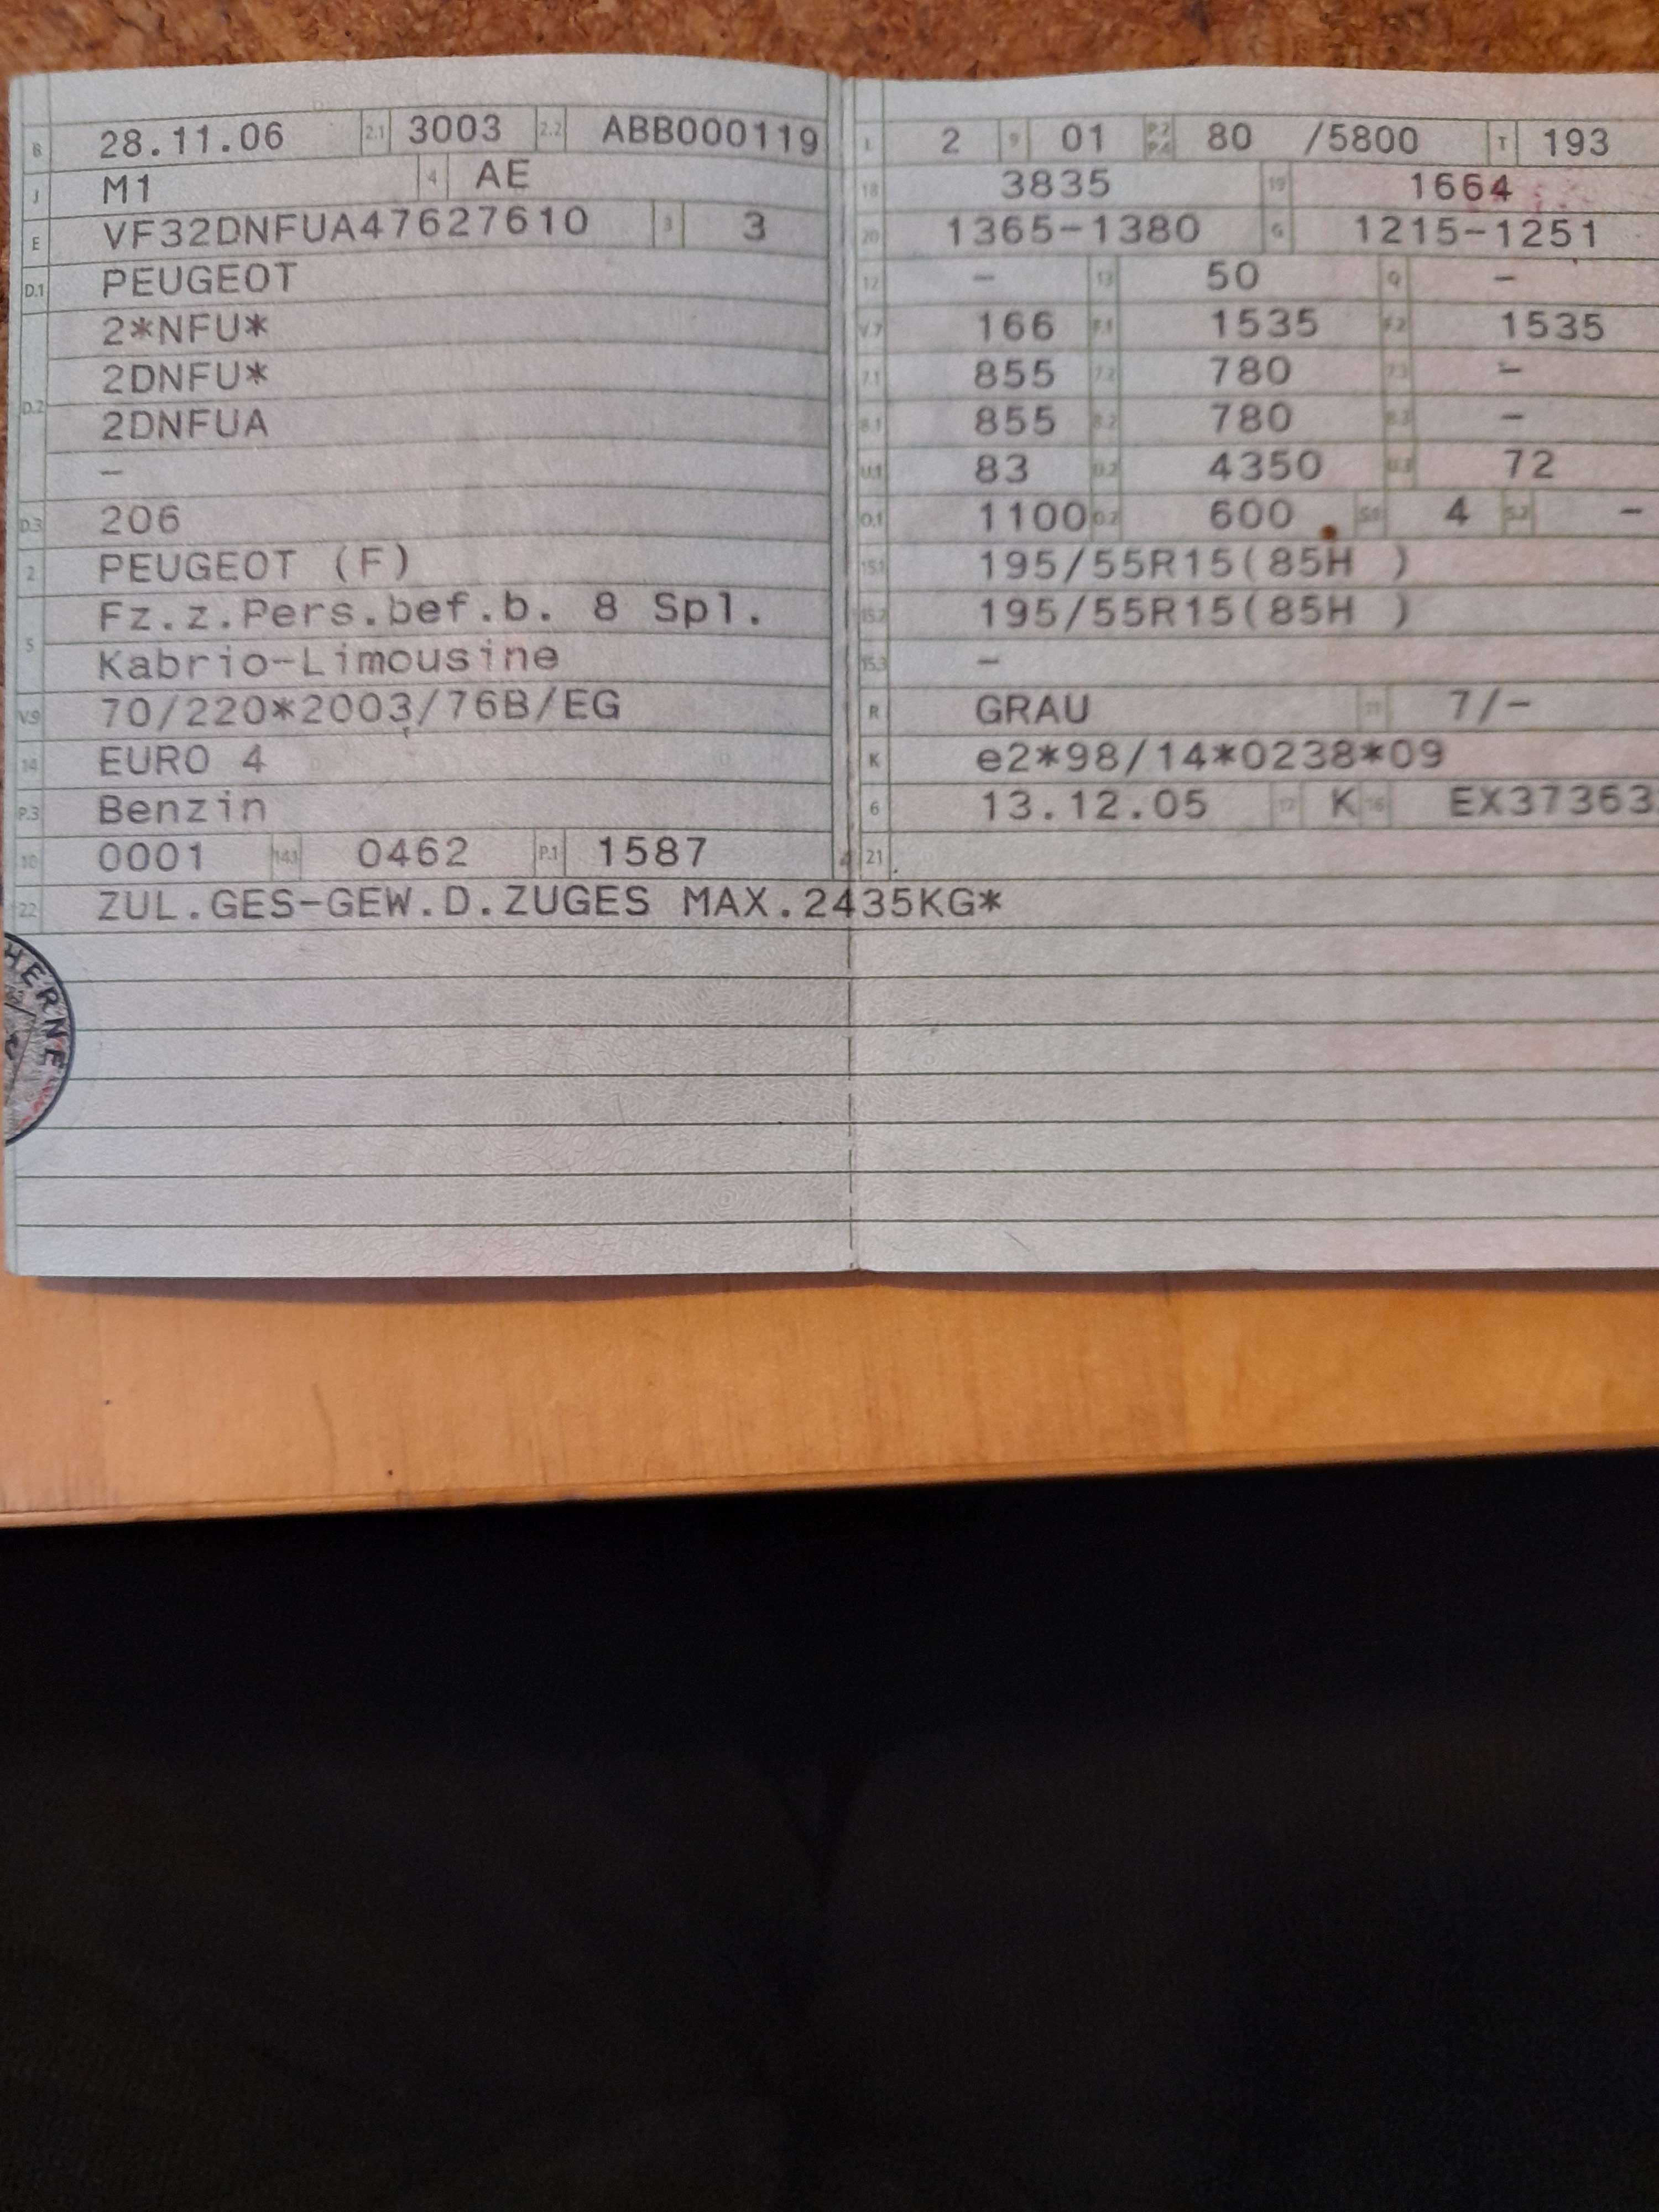 B 28.11.06 2.1 3003 2.2 ABB000119
J M1 4 AE
E VF32DNFUA47627610 3 3
D.1 PEUGEOT
2*NFU*
D.2 2DNFU*
2DNFUA
–
D.3 206
2 PEUGEOT (F)
5 Fz.z.Pers.bef.b. 8 Spl.
Kabrio-Limousine
V.9 70/220*2003/76B/EG
14 EURO 4
P.3 Benzin
10 0001 14.1 0462 P.1 1587
22 ZUL.GES-GEW.D.ZUGES MAX.2435KG*
HERNE
L 2 9 01 P.2 P.4 80 /5800 T 193
18 3835 19 1664
20 1365-1380 G 1215-1251
12 – 13 50 Q –
V.7 166 F.1 1535 F.2 1535
7.1 855 7.2 780 7.3 –
8.1 855 8.2 780 8.3 –
U.1 83 U.2 4350 U.3 72
O.1 1100 O.2 600 S.1 4 S.2 –
15.1 195/55R15(85H )
15.2 195/55R15(85H )
15.3 –
R GRAU 11 7/–
K e2*98/14*0238*09
6 13.12.05 17 K 16 EX37363
21